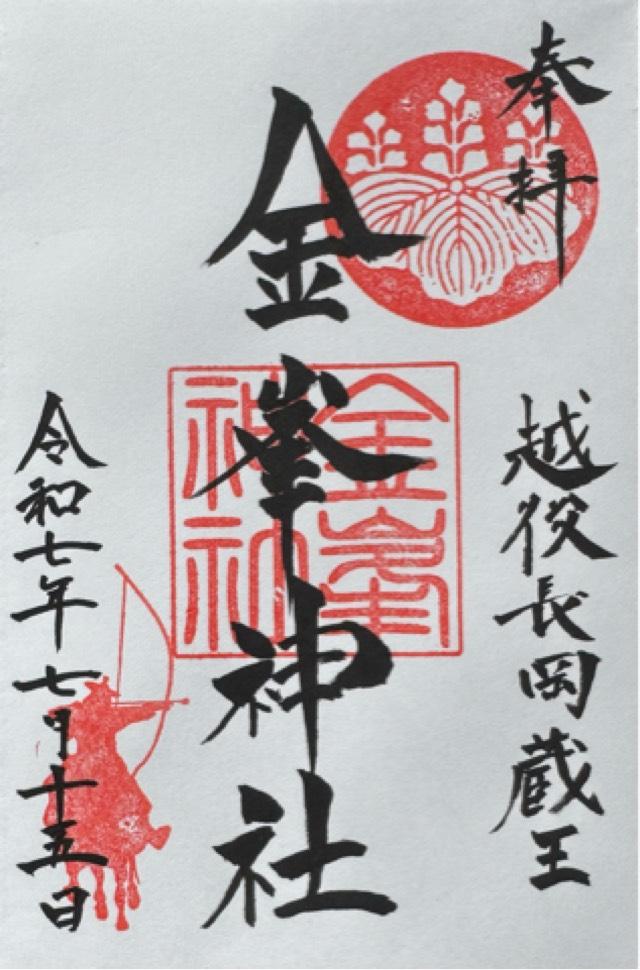 奉拝
越後長岡蔵王
金峯神社
金峯
神社
令和七年七月十五日